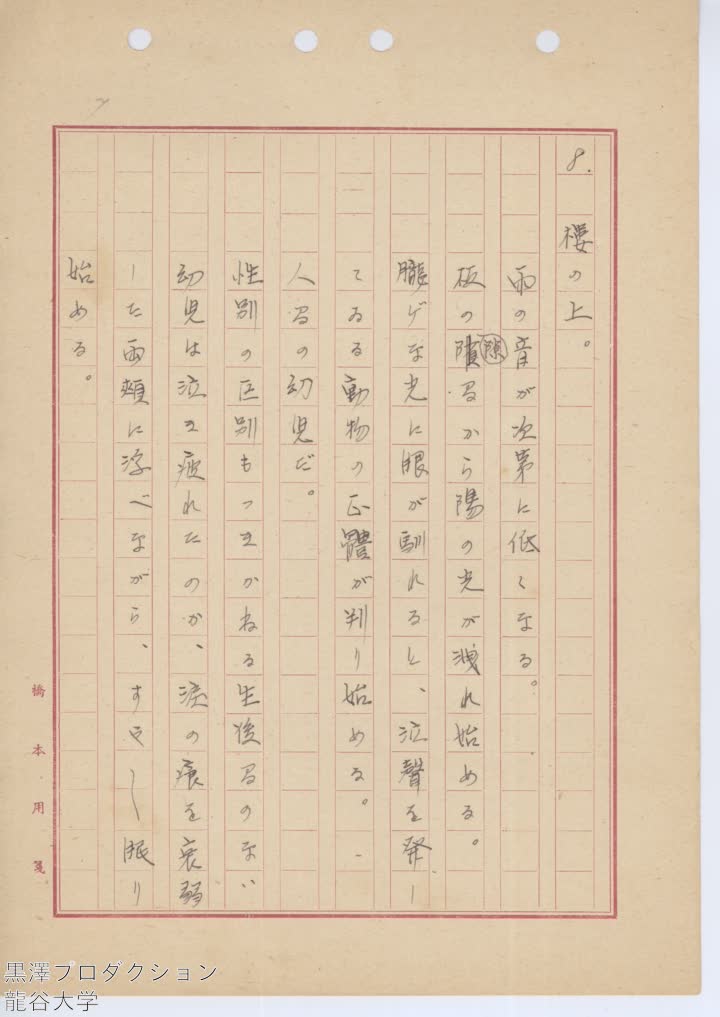 8.
樓の上。
雨の音が次第に低くなる。
板の隙間から陽の光が洩れ始める。
朧げな光に眼が馴れると、泣聲を発し
てゐる動物の正體が判り始める。
人間の幼児だ。
性別の区別もつきかねる生後間のない
幼児は泣き疲れたのか、涙の痕を衰弱
した両頬に浮べながら、すや〱眠り
始める。
橋本用箋
黒澤プロダクション
龍谷大学